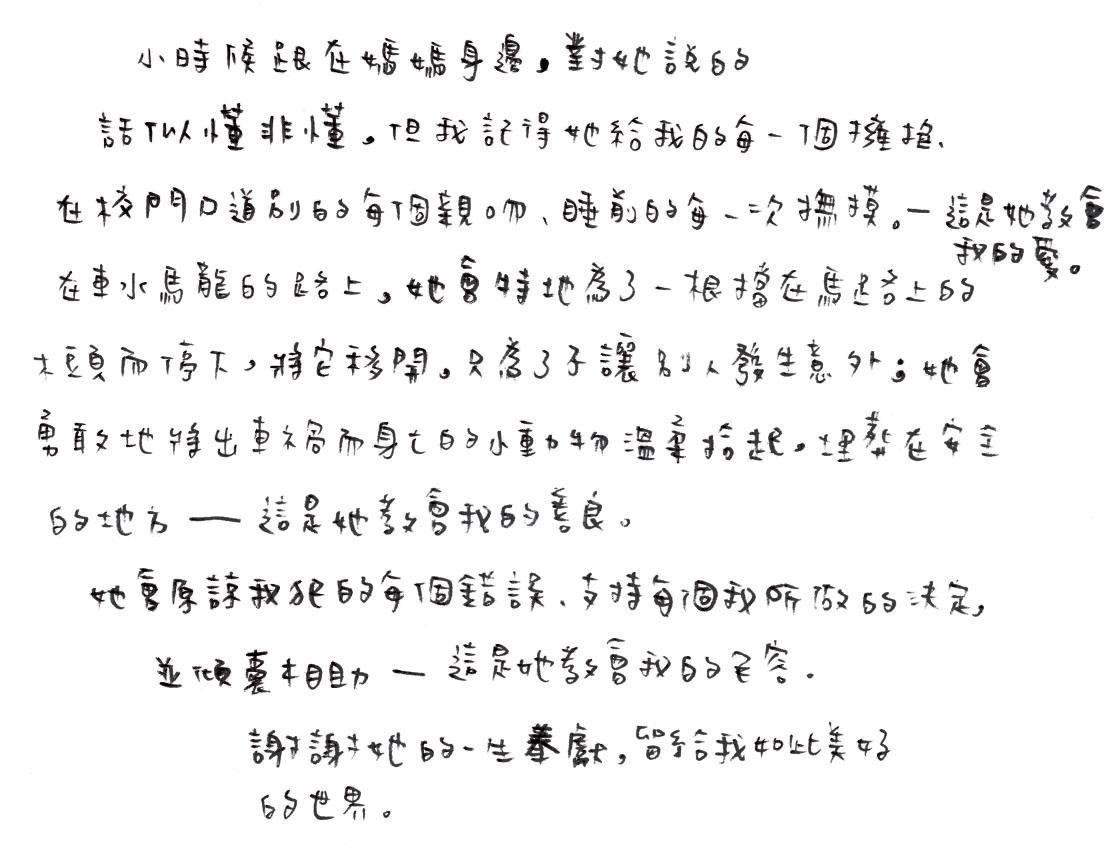 小時候跟在媽媽身邊，對她說的
話似懂非懂，但我記得她給我的每一個擁抱、
在校門口道別的每個親吻、睡前的每一次撫摸。一這是她教會
我的愛。
在車水馬龍的路上，她會特地為了一根擋在馬路上的
木頭而停下，將它移開。只為了不讓別人發生意外；她會
勇敢地將出車禍而身亡的小動物溫柔拾起，埋葬在安全
的地方 — 這是她教會我的善良。
她會原諒我犯的每個錯誤、支持每個我所做的決定，
並傾囊相助 — 這是她教會我的宽容.
謝謝她的一生奉獻，留給我如此美好
的世界。